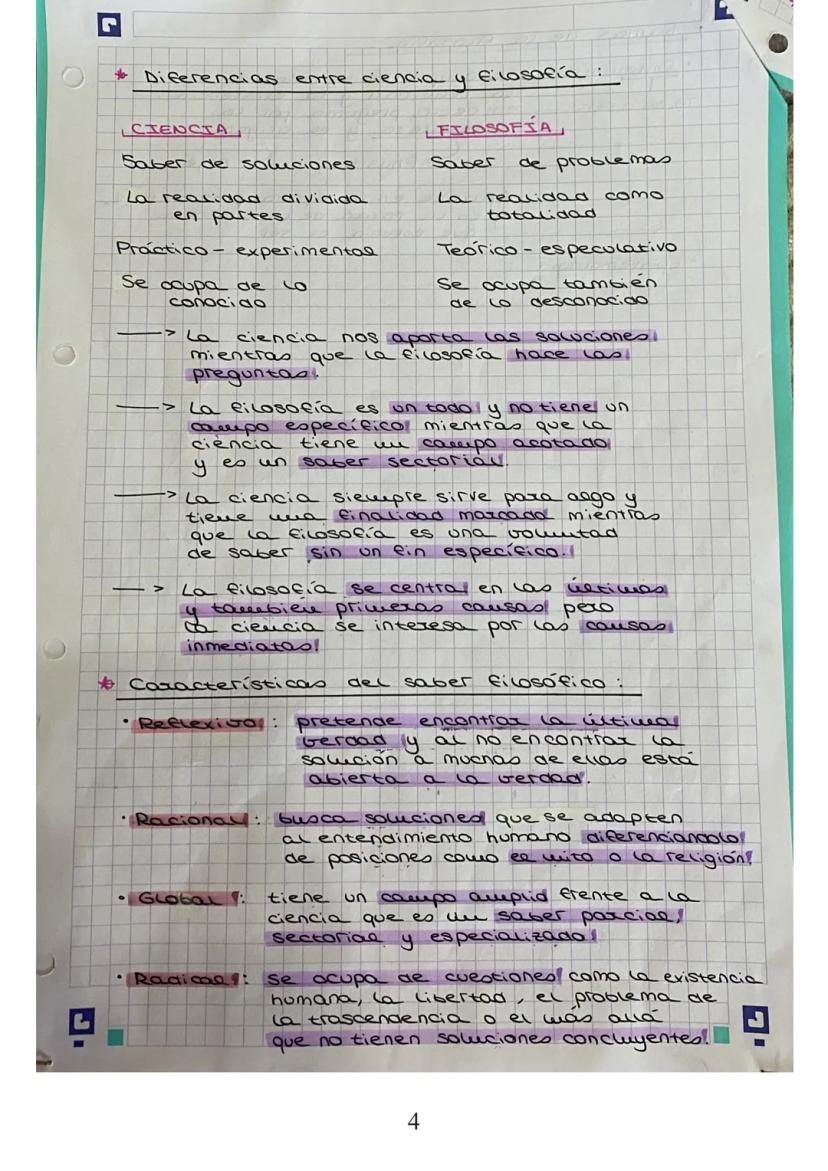 * Diferencias entre ciencia y filosofía :
CIENCIA
FILOSOFÍA
Saber de soluciones
Saber de problemas
La realidad dividida
en partes
La realidad como
totalidad
Práctico - experimental
Teórico - especulativo
Se ocupa de lo
conocido
Se ocupa también
de lo desconocido
—> La ciencia nos aporta las soluciones
mientras que la filosofía hace las
preguntas.
—> La filosofía es un todo y no tiene un
campo específico mientras que la
ciencia tiene un campo acotado
y es un saber sectorial.
—> La ciencia siempre sirve para algo y
tiene una finalidad marcada mientras
que la filosofía es una voluntad
de saber sin un fin específico.
—> La filosofía se central en las últimas
y tambien primeras causas pero
la ciencia se interesa por las causas
inmediatas
* Características del saber filosófico :
· Reflexivo : pretende encontrar la última
verdad y al no encontrar la
solución a muchas de ellas está
abierta a la verdad.
· Racional : busca soluciones que se adapten
al entendimiento humano diferenciandolo
de posiciones como el mito o la religión.
· Global : tiene un campo amplio frente a la
ciencia que es un saber parcial,
sectorial y especializado
· Radical : se ocupa de cuestiones como la existencia
humana, la libertad, el problema de
la trascendencia o el más allá
que no tienen soluciones concluyentes.
4